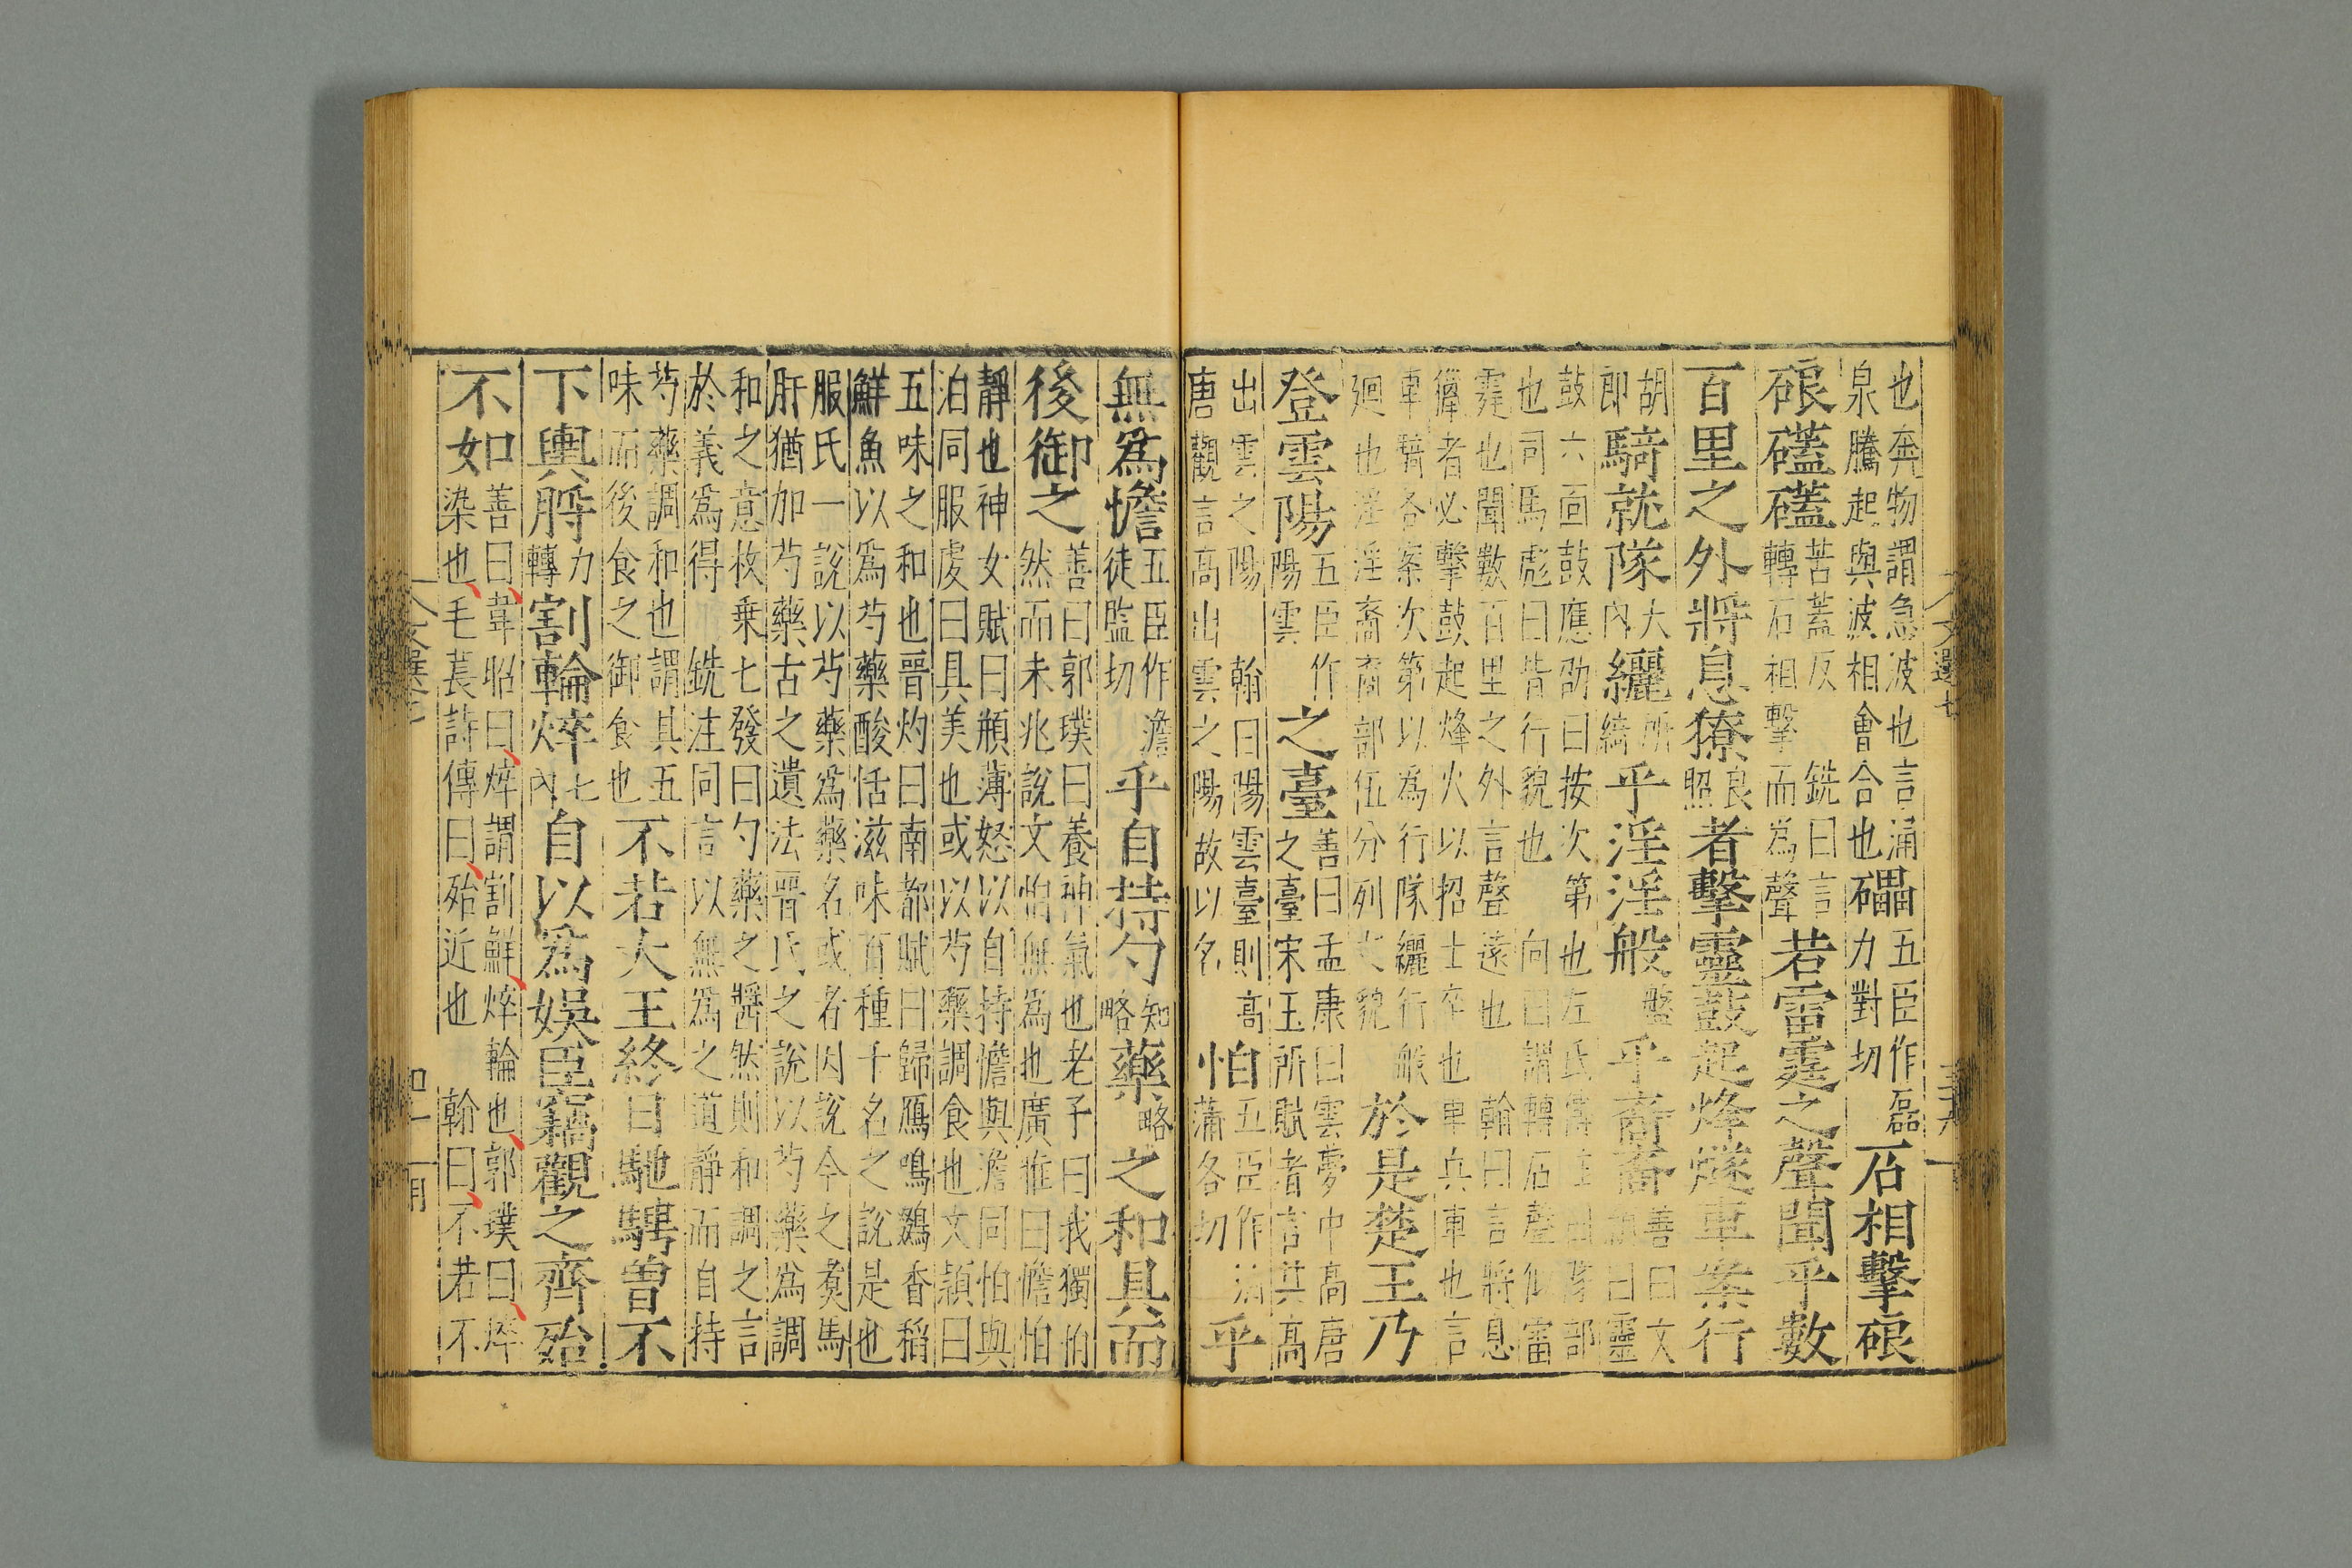 也奔物謂急波也言涌
泉騰起與波相會合也
礧
五臣作磊
力對切
石相擊硠
硠礚礚
苦蓋反 銑曰言
轉石相擊而為聲
若雷霆之聲聞乎數
百里之外將息獠
良
照
者擊靈鼓起烽燧車案行
胡
即
騎就隊
大
內
纚
所
綺
乎淫淫般
盤
乎裔裔
善曰文
曰靈
鼓六面鼓應劭曰按次第也左氏傳
隊部
也司馬彪曰皆行貌也 向曰謂轉石聲似雷
霆也聞數百里之外言聲遠也 翰曰言將息
獠者必擊鼓起烽火以招士卒也車兵車也言
車騎各案次第以為行隊纚行
廻也淫淫裔裔部伍分列之貌
於是楚王乃
登雲陽
五臣作
陽雲
之臺
善曰孟康曰雲夢中高唐
之臺宋玉所賦者言其高
出雲之陽 翰曰陽雲臺則高
唐觀言高出雲之陽故以名
怕
五臣作泊
蒲各切
乎
無為憺
五臣作澹
徒監切
乎自持勺
知
略
藥
略
之和具而
後御之
善曰郭璞曰養神氣也老子曰我獨怕
然而未兆說文怕無為也廣雅曰憺怕
靜也神女賦曰頩薄怒以自持憺與澹同怕與
泊同服虔曰具美也或以芍藥調食也文穎曰
五味之和也晉灼曰南都賦曰歸鴈鳴鵽香稻
鮮魚以為芍藥酸恬滋味百種千名之說是也
服氏一說以芍藥為藥名或者因說今之煑馬
肝猶加芍藥古之遺法晉氏之說以芍藥為調
和之意枚乗七發曰勺藥之醬然則和調之言
於義為得 銑注同言以無為之道靜而自持
芍藥調和也謂其五
味而後食之御食也
不若大王終日馳騁曾不
下輿脟
力
轉
割輪焠
七
內
自以為娛臣竊觀之齊殆
不如
善曰韋昭曰焠謂割鮮焠輪也郭璞曰焠
染也毛萇詩傳曰殆近也 翰曰不若不